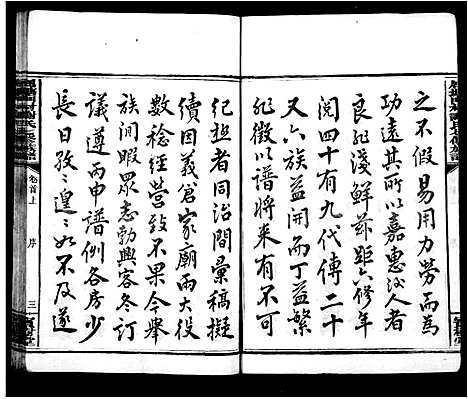 之不假易用力勞而為
功遠其所以嘉惠後人者
良非淺鮮茲距六修年
閱四十有九代傳二十
又六族益開而丁益繁
非徵以譜將來有不可
紀極者同治間彙稿擬
續因義倉家廟兩大役
數稔經營致不果今舉
族間暇眾志勃興客冬訂
議遵丙申譜例各房少
長日孜〻遑〻如不及遂
卷首上
序
三